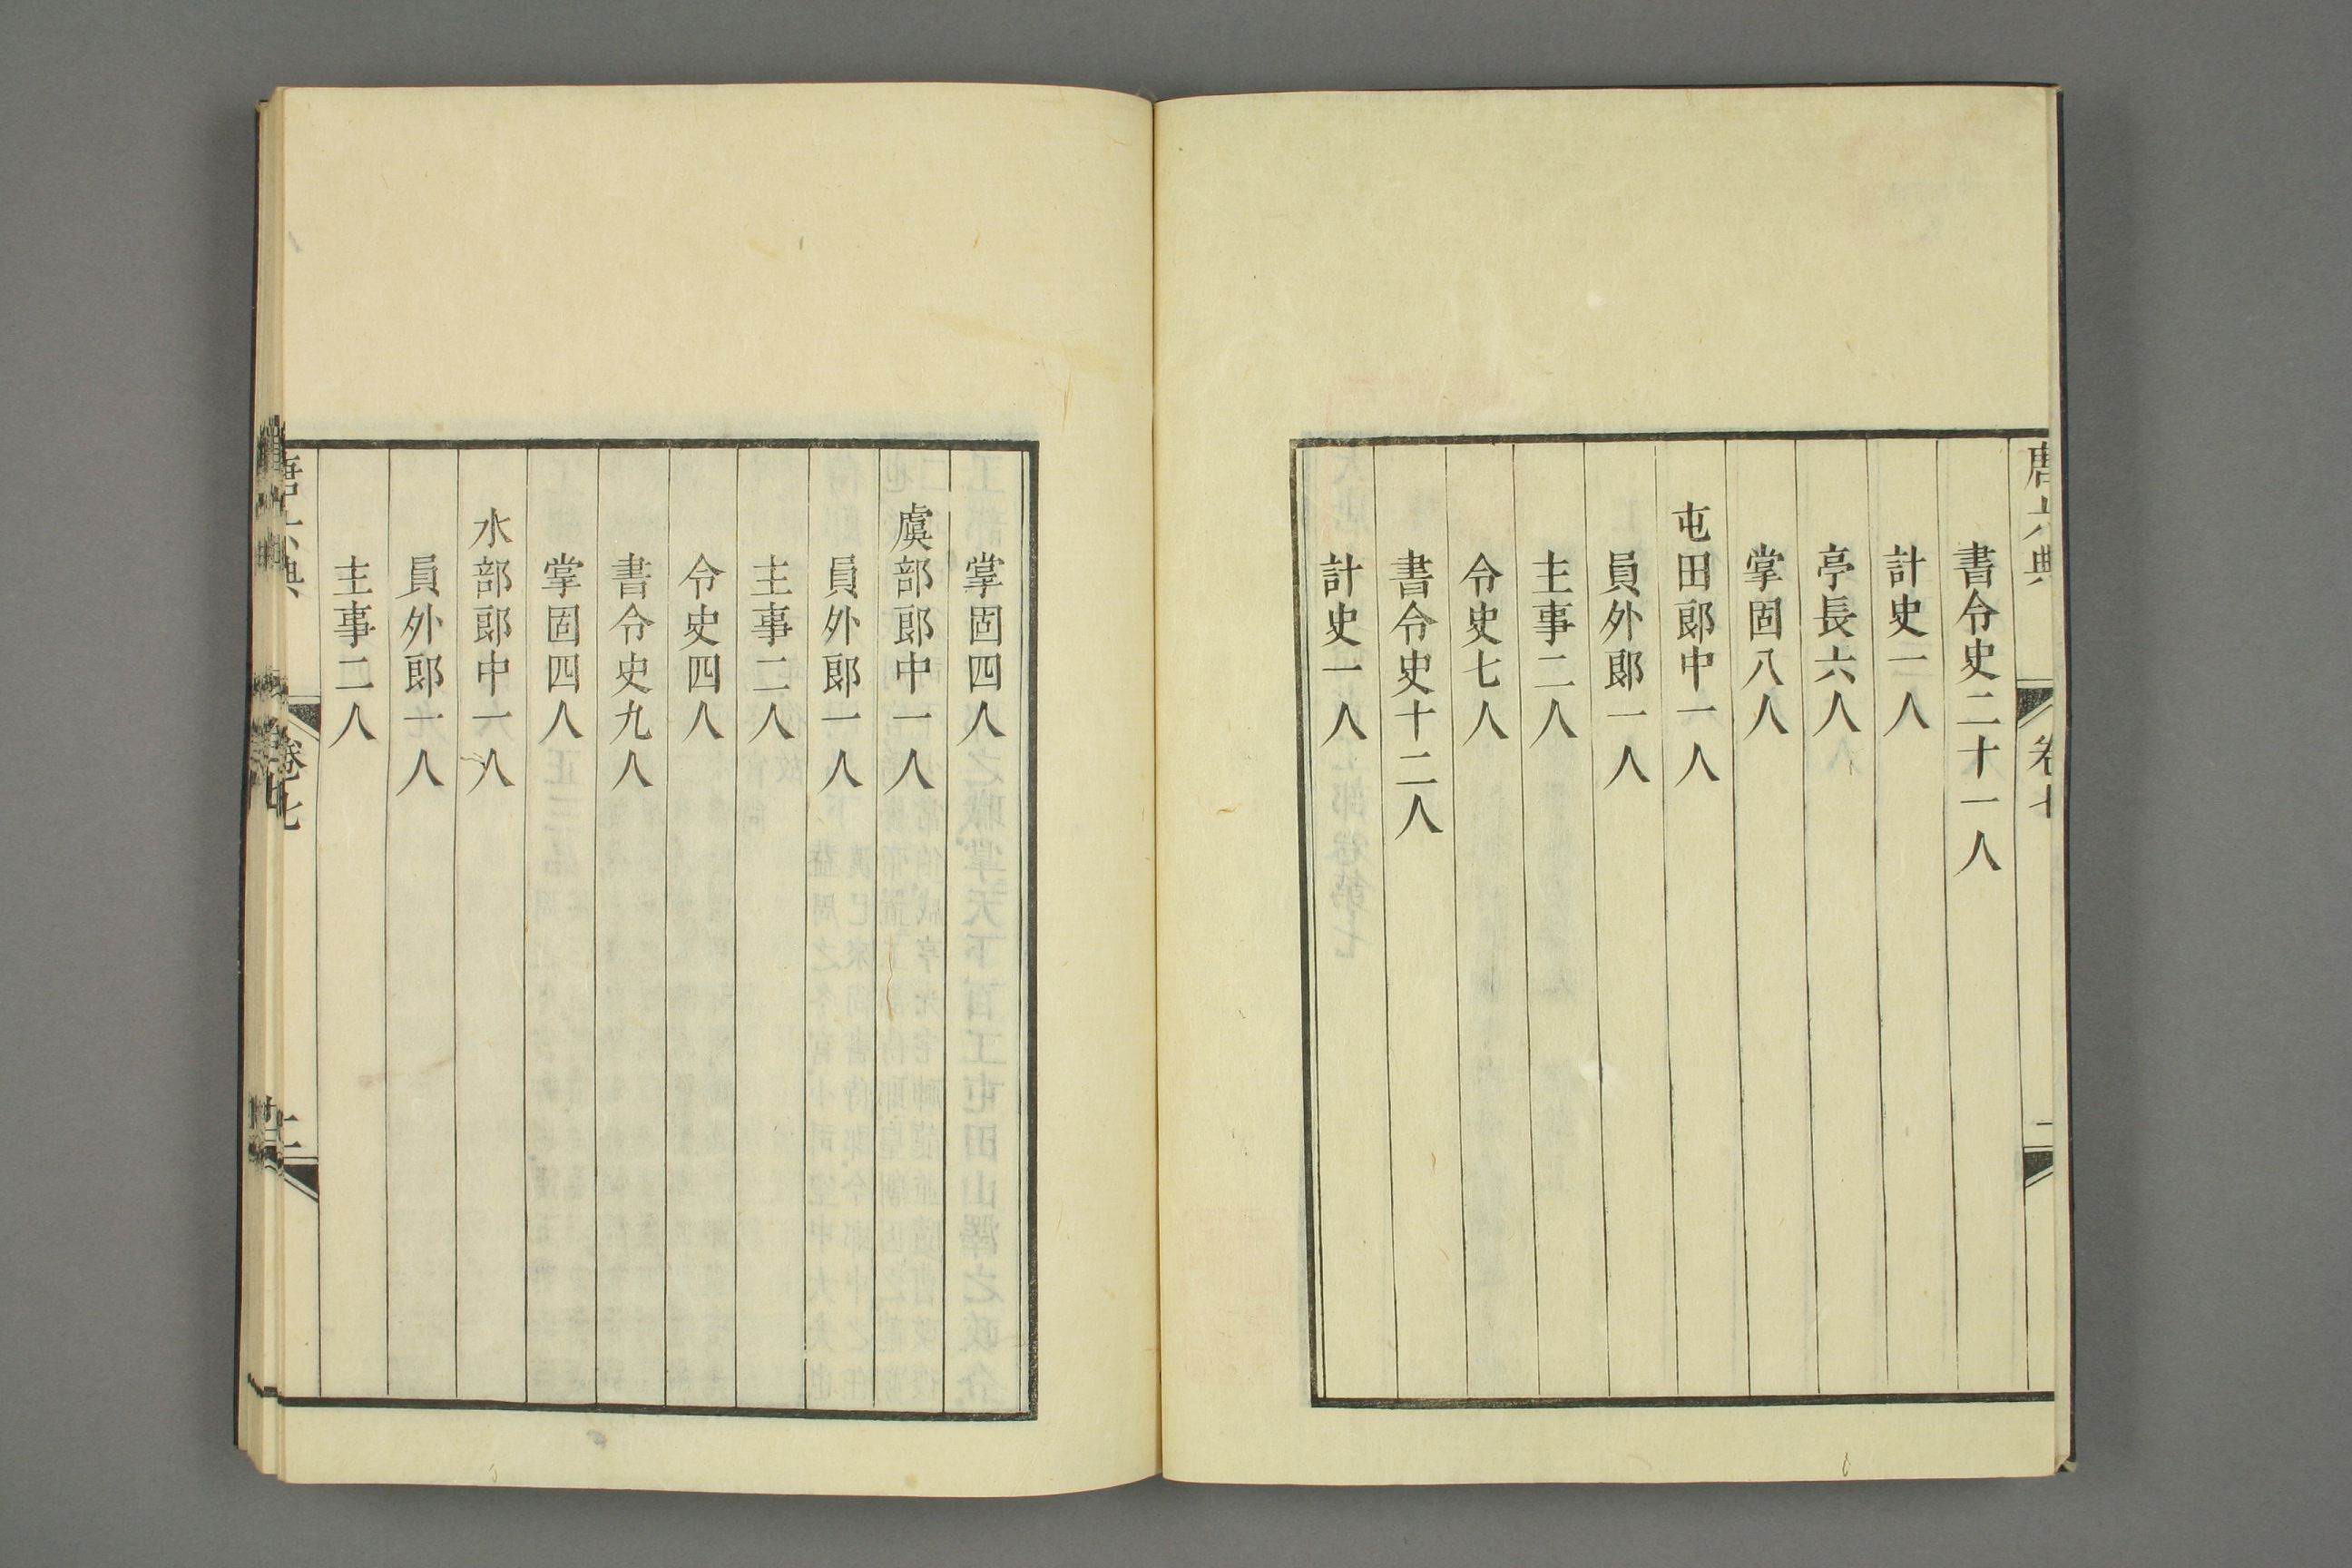 唐六典 卷七 二
書令史二十一人
計史一人
亭長六人
掌固八人
屯田郎中一人
員外郎一人
主事二人
令史七人
書令史十二人
計史一人
掌固四人
虞部郎中一人
員外郎一人
主事二人
令史四人
書令史九人
掌固四人
水部郎中一人
員外郎一人
主事二人
唐六典 卷七 二